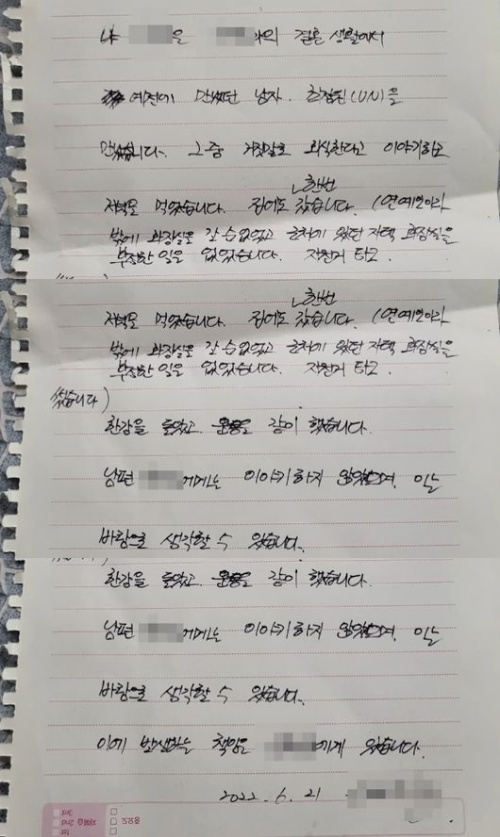 나 은 와의 결혼 생활에서
예전에 만났던 남자. 최정원(UN)을
만났습니다. 그중 거짓말로 회식한다고 이야기하고
한번
저녁도 먹었습니다. 집에도 갔습니다. (연예인이라
밖에 화장실로 갈 수 없었고 근처에 있던 자택 화장실을
부정한 일은 없었습니다. 자전거 타고.
한번
저녁도 먹었습니다. 집에도 갔습니다. (연예인이라
밖에 화장실로 갈 수 없었고 근처에 있던 자택 화장실을
부정한 일은 없었습니다. 자전거 타고.
썼습니다)
한강을 돌았고 운동도 같이 했습니다.
남편 에게는 이야기하지 않았으며, 이는
바람으로 생각할 수 있습니다.
한강을 돌았고 운동도 같이 했습니다.
남편 에게는 이야기하지 않았으며, 이는
바람으로 생각할 수 있습니다.
이에 발생하는 책임은 에게 있습니다.
2022. 6. 21
3rd
2nd
1st